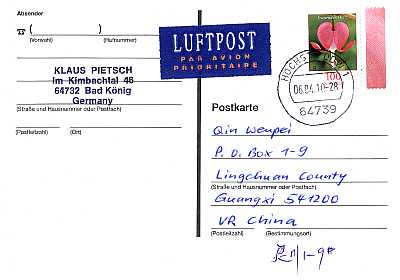 Absender
(Vorwahl) (Rufnummer)
KLAUS PIETSCH
Im Kimbachtal 46
64732 Bad König
Germany
(Straße und Hausnummer oder Postfach)
(Postleitzahl) (Ort)
LUFTPOST
PAR AVION
PRIORITAIRE
100
06.04.10-28
64739
Postkarte
Qin Wenpei
P.O. Box 1-9
Lingchuan County
(Straße und Hausnummer oder Postfach)
Guangxi 541200
VR China
(Postleitzahl) (Bestimmungsort)
1-9#